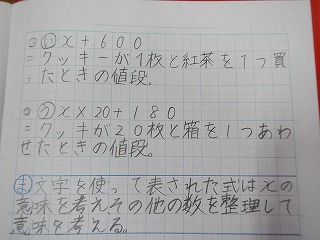 ◎㋑x+600
=クッキーが1枚と紅茶を1つ買
ったときの値段。
◎㋒x×20+180
=クッキが20枚と箱を1つあわ
せたときの値段。
㋮文字を使って表された式はxの
意味を考え、その他の数を整理して
意味を考える。